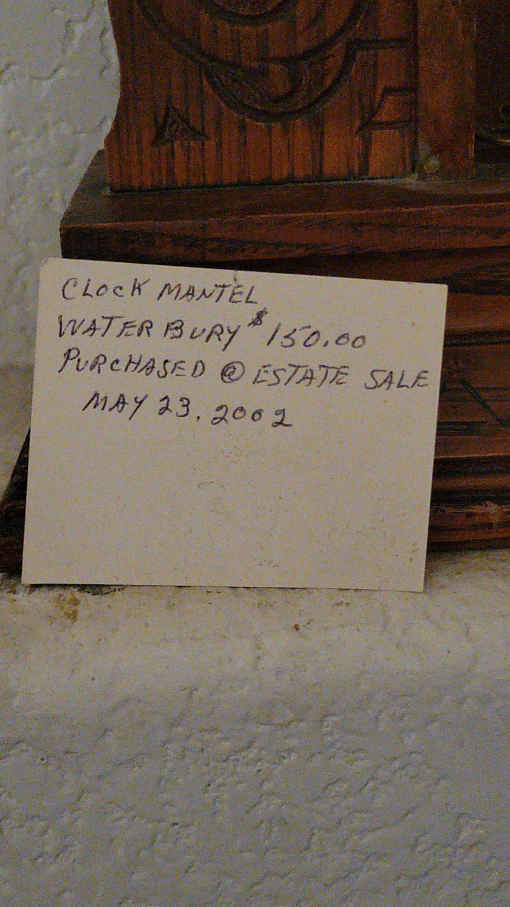 CLOCK MANTEL
WATERBURY $150.00
PURCHASED @ ESTATE SALE
MAY 23, 2002